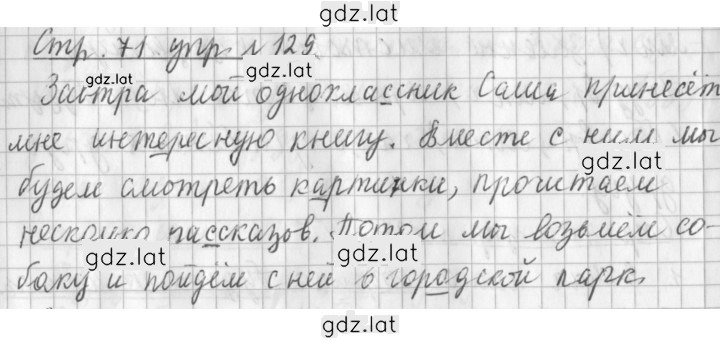 gdz.lat
Стр. 71 упр. №129.
gdz.lat gdz.lat
Завтра мой одноклассник Саша принесёт
мне интересную книгу. Вместе с ним мы
gdz.lat
будем смотреть картинки, прочитаем
несколько рассказов. Потом мы возьмём со-
gdz.lat gdz.lat
баку и пойдём с ней в городской парк.
gdz.lat